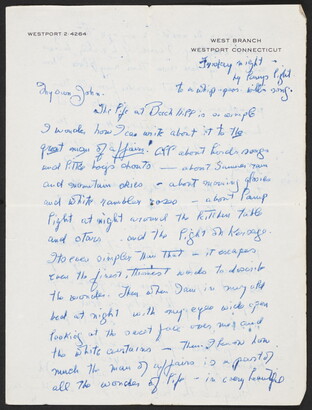 WESTPORT 2-4264
WEST BRANCH
WESTPORT CONNECTICUT
Sunday night -
by lamp light
to a whip-poor-will's song.
My own John -
The life at Beech Hill is so simple
I wonder how I can write about it to the
great man of affairs! All about birds' songs
and little boys' shouts - about Summer rain
and mountain skies - about morning glories
and white rambler roses - about lamp
light at night around the kitchen table
and stars and the light on
Its even simpler than that - it escapes
even the finest, thinnest words to describe
the wonder. Then when I am in my old
bed at night with my eyes wide open
looking at the roof over me and
the white curtains - then I know how
much the man of affairs is a part of
all the wonder of life - in every beautiful